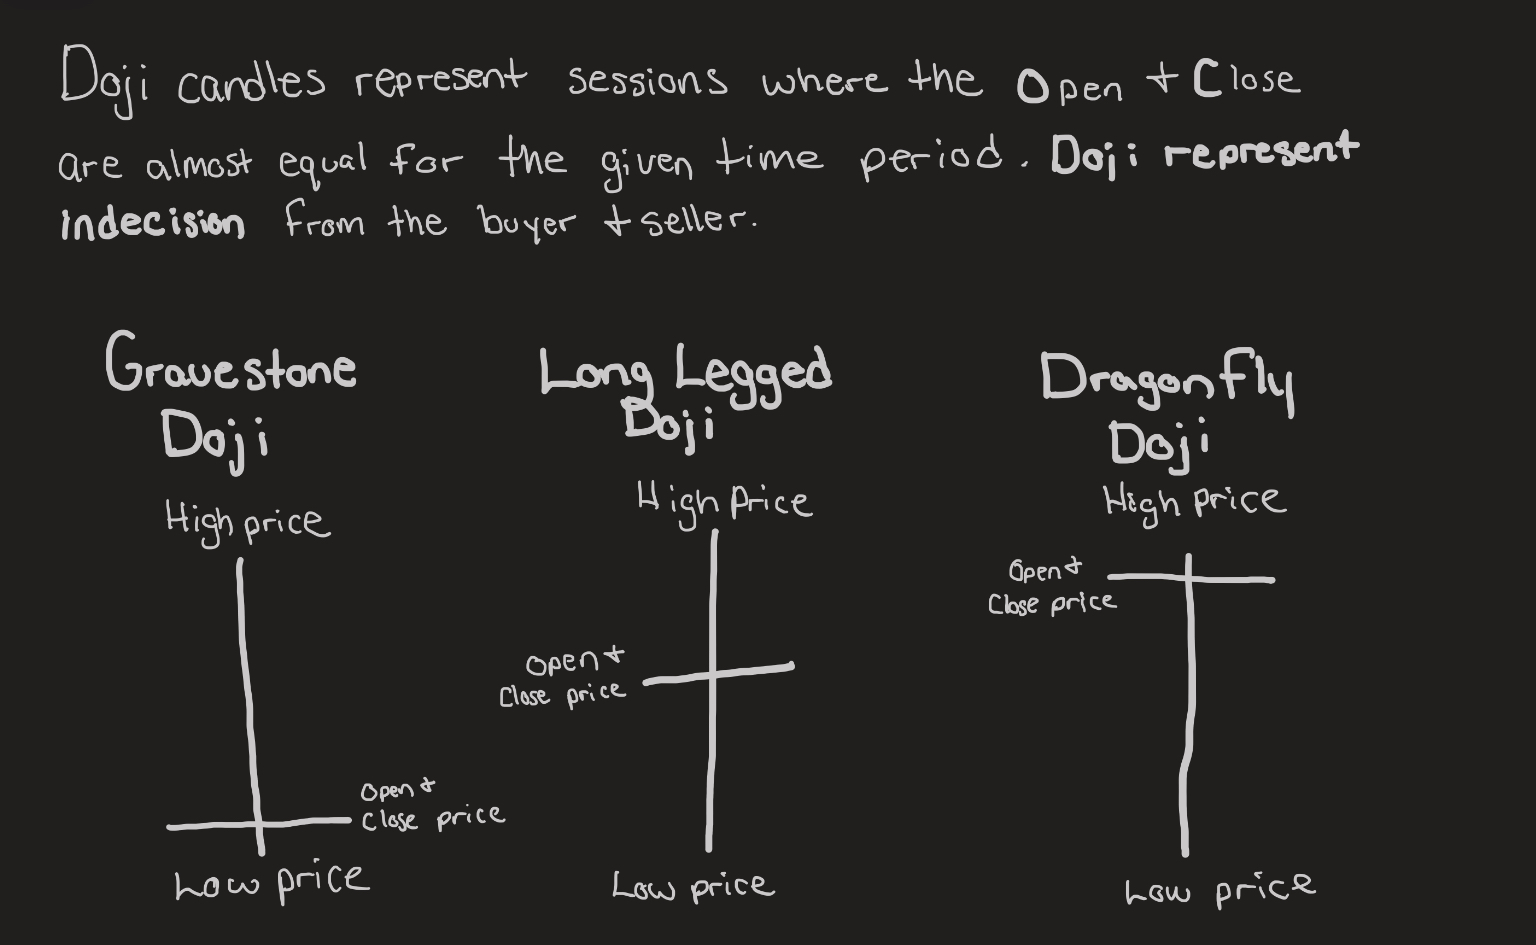 Doji candles represent sessions where the Open + Close
are almost equal for the given time period. Doji represent
indecision from the buyer + seller.
Gravestone
Doji
High price
Open +
Close price
Low price
Long Legged
Doji
High Price
Open +
Close price
Low price
Dragonfly
Doji
High price
Open +
Close price
Low price